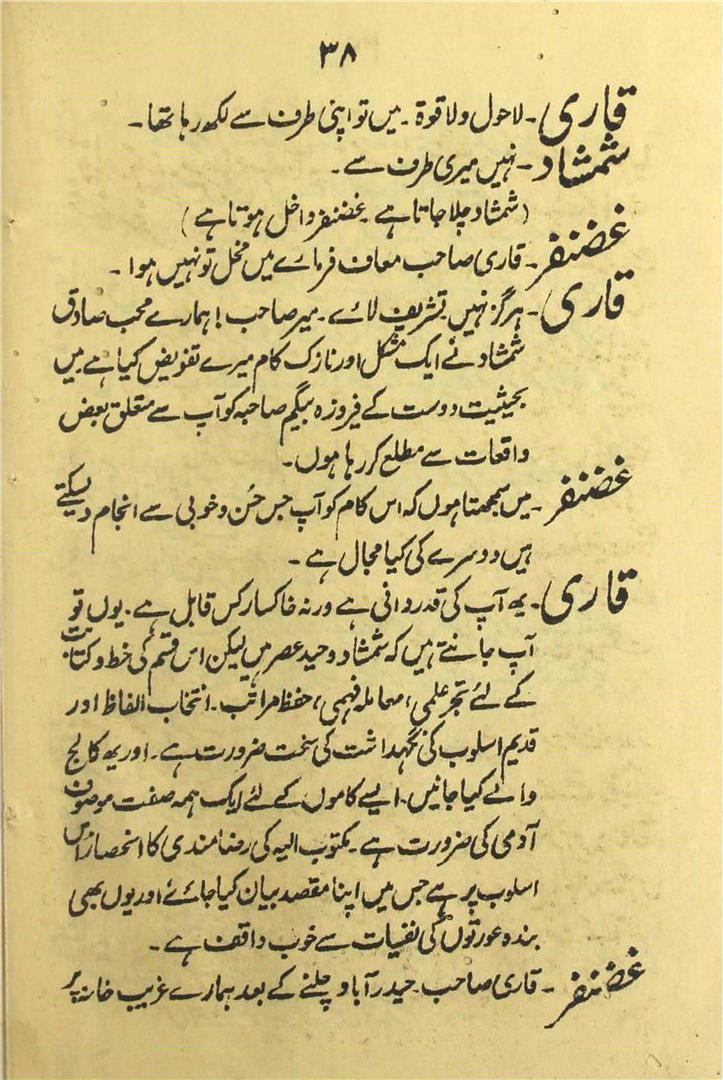 ۳۸
قاری - لاحول ولا قوة - میں تو اپنی طرف سے لکھ رہا تھا -
شمشاد - نہیں میری طرف سے -
(شمشاد چلا جاتا ہے - غضنفر داخل ہوتا ہے)
غضنفر - قاری صاحب معاف فرمائے میں مخل تو نہیں ہوا -
قاری - ہرگز نہیں تشریف لائے - میر صاحب! ہمارے محب صادق
شمشاد نے ایک مشکل اور نازک کام میرے تفویض کیا ہے میں
بحیثیت دوست کے فیروزہ بیگم صاحبہ کو آپ سے متعلق بعض
واقعات سے مطلع کر رہا ہوں -
غضنفر - میں سمجھتا ہوں کہ اس کام کو آپ جس حُسن و خوبی سے انجام دیسکتے
ہیں دوسرے کی کیا مجال ہے -
قاری - یہ آپ کی قدردانی ہے ورنہ خاکسار کس قابل ہے - یوں تو
آپ جانتے ہیں کہ شمشاد وحید عصر ہیں لیکن اس قسم کی خط و کتابت
کے لئے تبحر علمی، معاملہ فہمی، حفظ مراتب - انتخاب الفاظ اور
قدیم اسلوب کی نگہداشت کی سخت ضرورت ہے - اور یہ کالج
والے کیا جانیں - ایسے کاموں کے لئے ایک ہمہ صفت موصوف
آدمی کی ضرورت ہے - مکتوب الیہ کی رضامندی کا انحصار اس
اسلوب پر ہے جس میں اپنا مقصد بیان کیا جائے اور یوں بھی
بندہ عورتوں کی نفسیات سے خوب واقف ہے -
غضنفر - قاری صاحب - حیدرآباد چلنے کے بعد ہمارے غریب خانہ پر